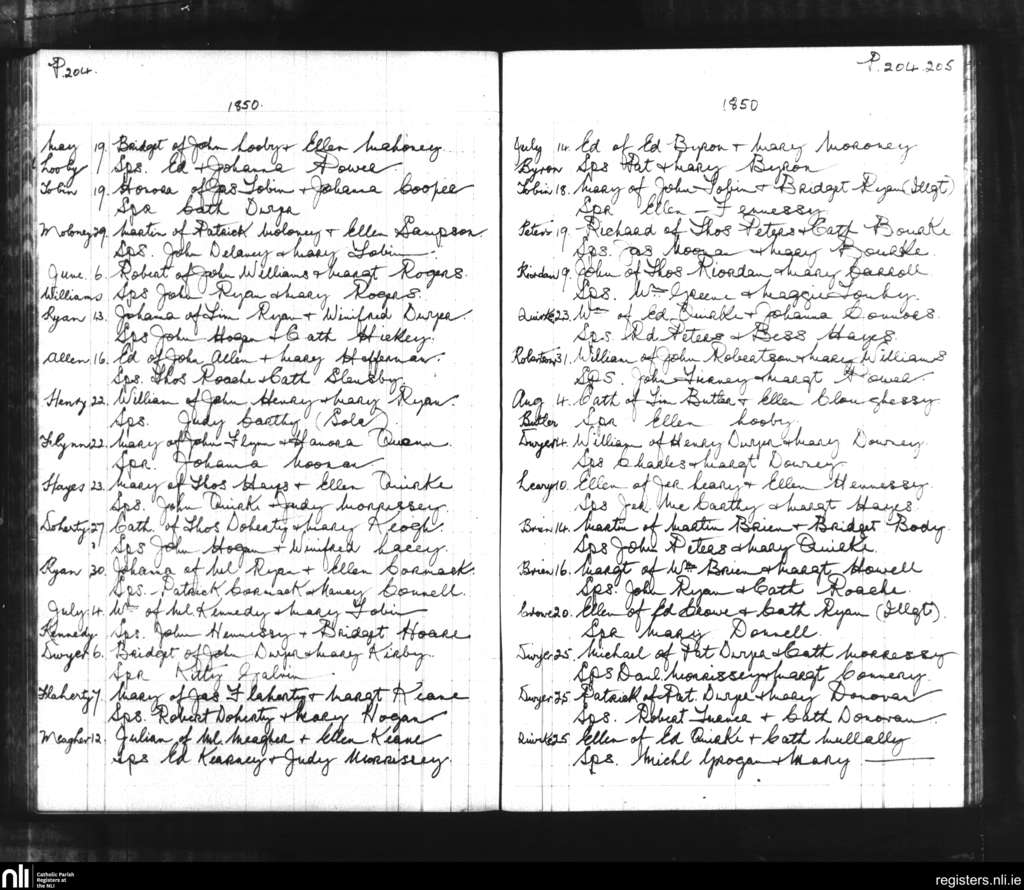 P. 204.
1850.
May 19. Bridget of John Looby & Ellen Mahoney.
Looby Sps. Ed & Johanna Power
Tobin 19. Honora of Jas Tobin & Johana Cooper
Spr Cath Dwyer
Moloney 29. Martin of Patrick Moloney & Ellen Sampson.
Sps. John Delaney & Mary Tobin
June. 6. Robert of John Williams & Margt Rogers.
Williams Sps John Ryan & Mary Rogers.
Ryan 13. Johana of Tim Ryan & Winifred Dwyer.
Sps John Hogan & Cath Hickey.
Allen 16. Ed of John Allen & Mary Heffernan.
Sps. Thos Roache & Cath
Henry 22. William of John Henry & Mary Ryan.
Sps. Judy Carthy (Sola)
Flynn 22. Mary of John Flynn & Hanora
Spr. Johanna Noonan
Hayes 23. Mary of Thos Hays & Ellen Quirke
Sps. John Quirke & Judy Morrissey
Doherty 27 Cath of Thos Doherty & Mary Keogh
Sps John Hogan & Winifred Lacey.
Ryan 30. Johana of Ml Ryan & Ellen Cormack.
Sps. Patrick Cormack & Nancy Connell.
July. 4. Wm of Ml Kennedy & Mary Tobin
Kennedy Sps. John Hennessy & Bridget Hoare
Dwyer 6. Bridget of John Dwyer & Mary Kirby.
Spr Kitty Galvin
Flaherty 7. Mary of Jas Flaherty & Margt Keane
Sps. Robert Doherty & Mary Hogan
Meagher 12. Julian of Ml Meagher & Ellen Keane
Sps Ed Kearney & Judy Morrissey.
P. 204. 205
1850
July 14. Ed of Ed Byron & Mary Moroney
Byron Sps Pat & Mary Byron
Tobin 18. Mary of John Tobin & Bridget Ryan (Illgt)
Spr Ellen Fennessy
Peters 19. Richard of Thos Peters & Cath Bourke
Sps. Jas Noonan & Mary Bourke.
Riordan 9. John of Thos Riordan & Mary Carroll
Sps. Wm Greene & Maggie
Quirke 23. Wm of Ed Quirke & Johanna Connors.
Sps. Rd Peters & Bess Hayes.
Robertson 31. William of John Robertson & Mary Williams
Sps. John & Margt Power
Aug 4. Cath of Tim Butler & Ellen Cloughessy
Butler Spr Ellen Looby.
Dwyer 4. William of Henry Dwyer & Mary Downey
Sps Charles & Margt Downey
Leary 10. Ellen of Jer Leary & Ellen Hennessy
Sps Jer. Mc Carthy & Margt Hayes
Brien 14. Martin of Martin Brien & Bridget Body
Sps John Peters & Mary Quirke.
Brien 16. Margt of Wm Brien & Margt Howell
Sps. John Ryan & Cath Roache.
Crowe 20. Ellen of Ed Crowe & Cath Ryan (Illgt).
Spr Mary Donnell.
Dwyer 25. Michael of Pat Dwyer & Cath Morressy
Sps Danl Morrissey & Margt Connery.
Dwyer 25 Patrick of Pat. Dwyer & Mary Donovan
Sps. Robert & Cath Donovan
Quirke 25 Ellen of Ed Quirke & Cath Mullally
Sps. Michl Grogan & Mary ———
nli Catholic Parish
Registers at
the NLI
registers.nli.ie